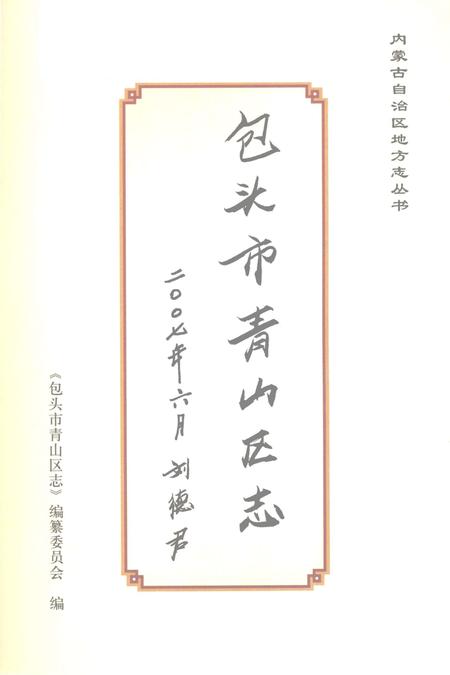 内蒙古自治区地方志丛书
包头市青山区志
二〇〇七年六月 刘德君
《包头市青山区志》编纂委员会 编